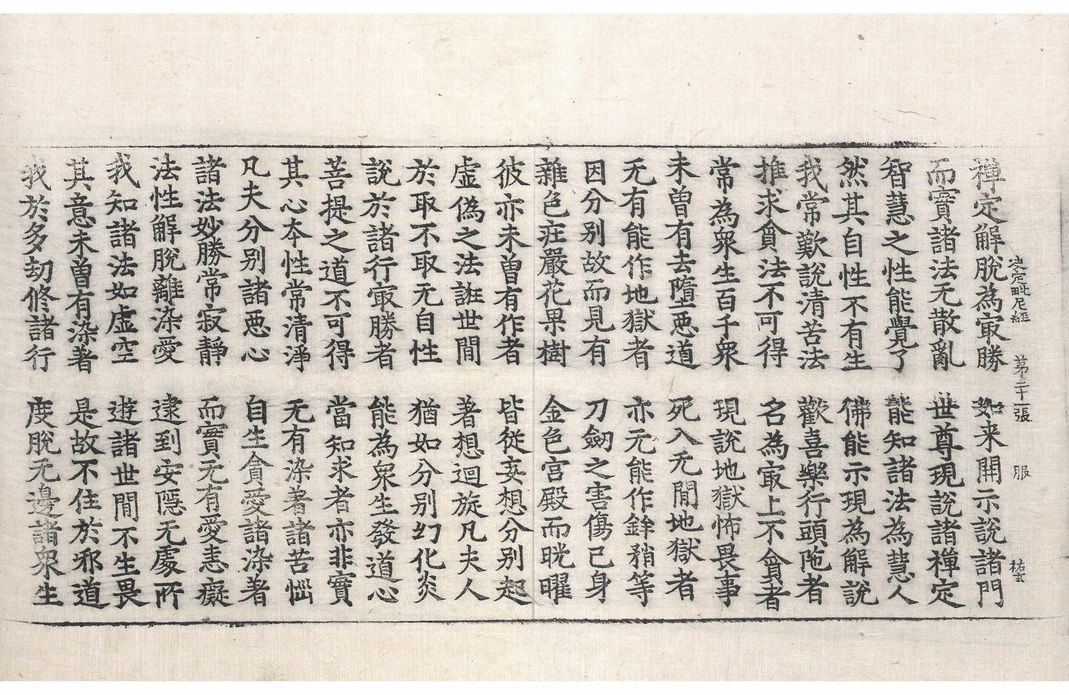 決定毗尼經 苐二十張 服 祐玄
禪定解脫為㝡勝 如来開示說諸門
而實諸法无散亂 世尊現說諸禪定
智慧之性能覺了 能知諸法為慧人
然其自性不有生 佛能示現為解說
我常歎說清苦法 歡喜樂行頭陁者
推求貪法不可得 名為㝡上不貪者
常為衆生百千衆 現說地獄怖畏事
未曾有去墮惡道 死入无間地獄者
无有能作地獄者 亦无能作鉾矟等
因分别故而見有 刀劒之害傷己身
雜色莊嚴花果樹 金色宮殿而晄曜
彼亦未曾有作者 皆從妄想分别起
虛偽之法誑世間 著想迴旋凡夫人
於取不取无自性 猶如分别幻化炎
說於諸行㝡勝者 能為衆生發道心
菩提之道不可得 當知求者亦非實
其心本性常清淨 无有染著諸苦惱
凡夫分别諸惡心 自生貪愛諸染著
諸法妙勝常寂静 而實无有愛恚癡
法性解脫離染愛 逮到安隱无處所
我知諸法如虛空 遊諸世間不生畏
其意未曾有染著 是故不住於邪道
我於多劫修諸行 度脫无邊諸衆生